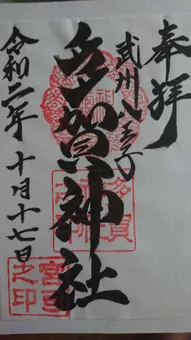 奉拝
武州八王子
多賀神社
令和二年十月十七日
多賀
宮司之印